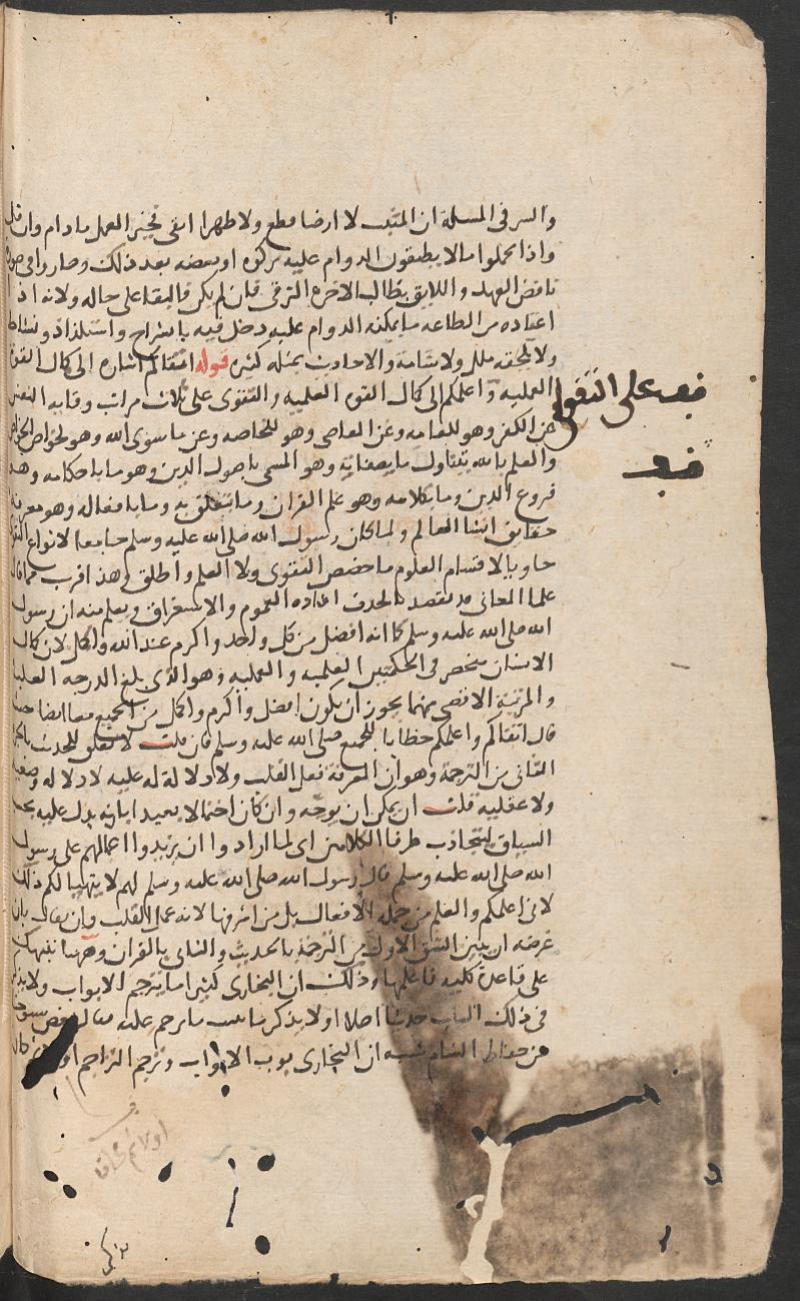 والسر في المسلة ان المتبت لا ارضا قطع ولا ظهرا ابقى فخير العمل ما دام وان قل
واذا تحملوا ما لا يطيقون الدوام عليه تركوه او بعضه بعد ذلك وصاروا في صورة
ناقض العهد واللايق بطالب الاخرة الترقي فان لم يكن فالبقا على حاله ولانه اذا
اعتاد من الطاعه ما يمكنه الدوام عليه دخل فيه بانشراح واستلذاذ ونشاط
ولا يلحقه ملل ولا سامة والاحاديث بمثله كثيره قوله اتقاكم اشاره الى كمال القوة
العمليه واعلمكم الى كمال القوه العلميه والتقوى على ثلاث مراتب وقايه النفس
عن الكفر وهو للعامه وعن المعاصي وهو للخاصه وعن ما سوى الله وهو لخواص الخواص
والعلم بالله يتناول ما بصفاته وهو المسمى باصول الدين وهو ما باحكامه وهو
فروع الدين وما بكلامه وهو علم القران وما يتعلق به وما بافعاله وهو معرفه
حقايق اشيا العالم ولما كان رسول الله صلى الله عليه وسلم جامعا لانواع التقوى
حاويا لاقسام العلوم ما خصص التقوى ولا العلم واطلق وهذا اقرب مما قال
علما المعاني قد يقصد بالحذف افاده العموم والاستغراق ويعلم منه ان رسول
الله صلى الله عليه وسلم كما انه افضل من كل واحد واكرم عند الله واكمل لان كمال
الانسان منحصر في الحكمتين العلميه والعمليه وهو الذي بلغ الدرجه العليا
والمرتبة الاقصى منهما يجوز ان يكون افضل واكرم واكمل من الجميع معا ايضا حيث
قال اتقاكم واعلمكم خطابا للجميع صلى الله عليه وسلم فان قلت لا تعلق للحديث بالجز
الثاني من الترجمة وهو ان المعرفة فعل القلب ولا دلالة له عليه لا دلاله وضعيه
ولا عقليه قلت ان يمكن ان يوجه وان كان احتمالا بعيدا بانه يدل عليه بحسب
السياق لتجاذب طرفا الكلامين اي لما ارادوا ان يزيدوا اعمالهم على رسول
الله صلى الله عليه وسلم قال رسول الله صلى الله عليه وسلم لهم لا يتهيا لكم ذلك
لاني اعلمكم والعلم من جمله الافعال بل من اشرفها لانه عمل القلب وان يقال بان
غرضه ان يبين الشق الاول من الترجمة بالحديث والثاني بالقران وههنا ننبهك
على قاعدة كليه فاعلمها وذلك ان البخاري كثيرا ما يترجم الابواب ولا يذكر
في ذلك الباب حديثا اصلا او لا يذكر ما يثبت ما ترجم عليه قال بعض شيوخنا
من حفاظ الشام سببه ان البخاري بوب الابواب وترجم التراجم اولا
قف على التقوى
قف